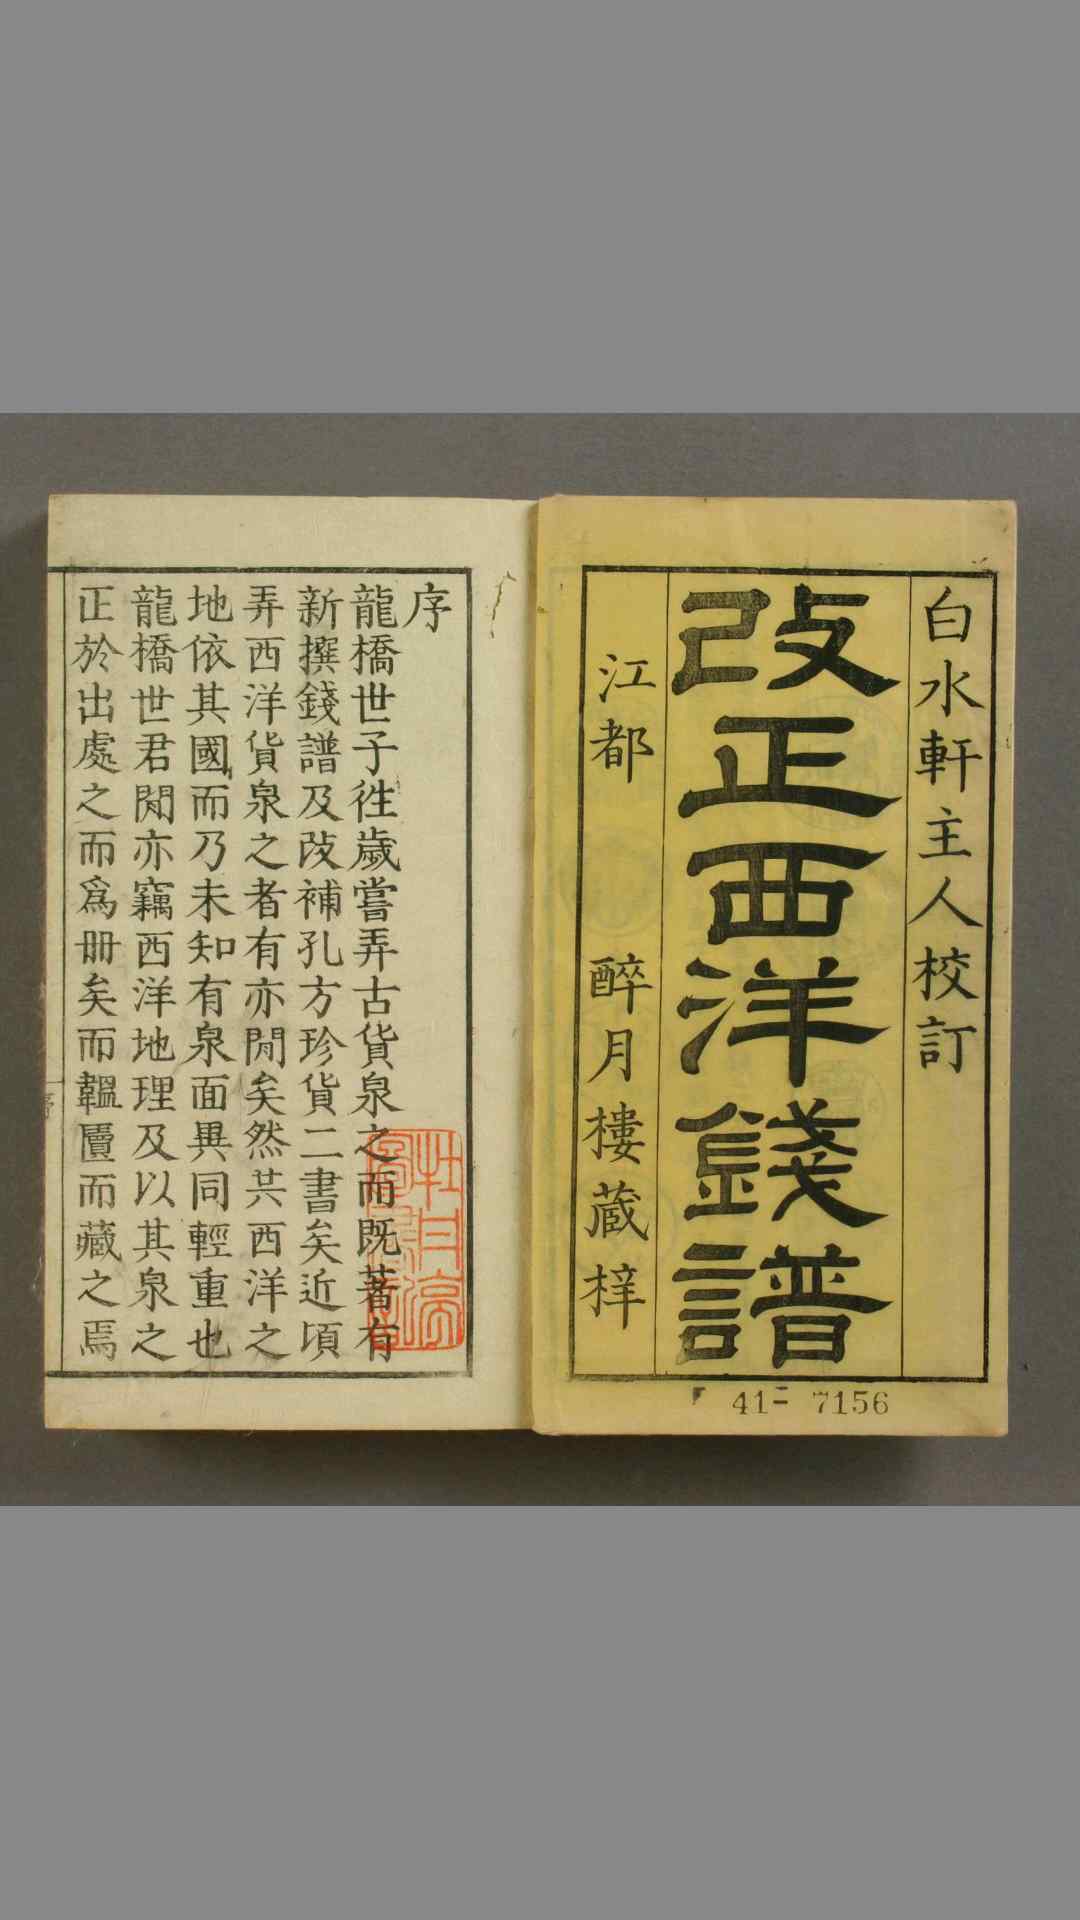 白水軒主人校訂
改正西洋錢譜
江都 醉月樓蔵梓
41-7156
序
龍橋世子徃歲嘗弄古貨泉之而既著有
新撰錢譜及改補孔方珍貨二書矣近頃
弄西洋貨泉之者有亦閒矣然其西洋之
地依其國而乃未知有泉面異同輕重也
龍橋世君閒亦竊西洋地理及以其泉之
正於出處之而爲冊矣而韞匵而藏之焉